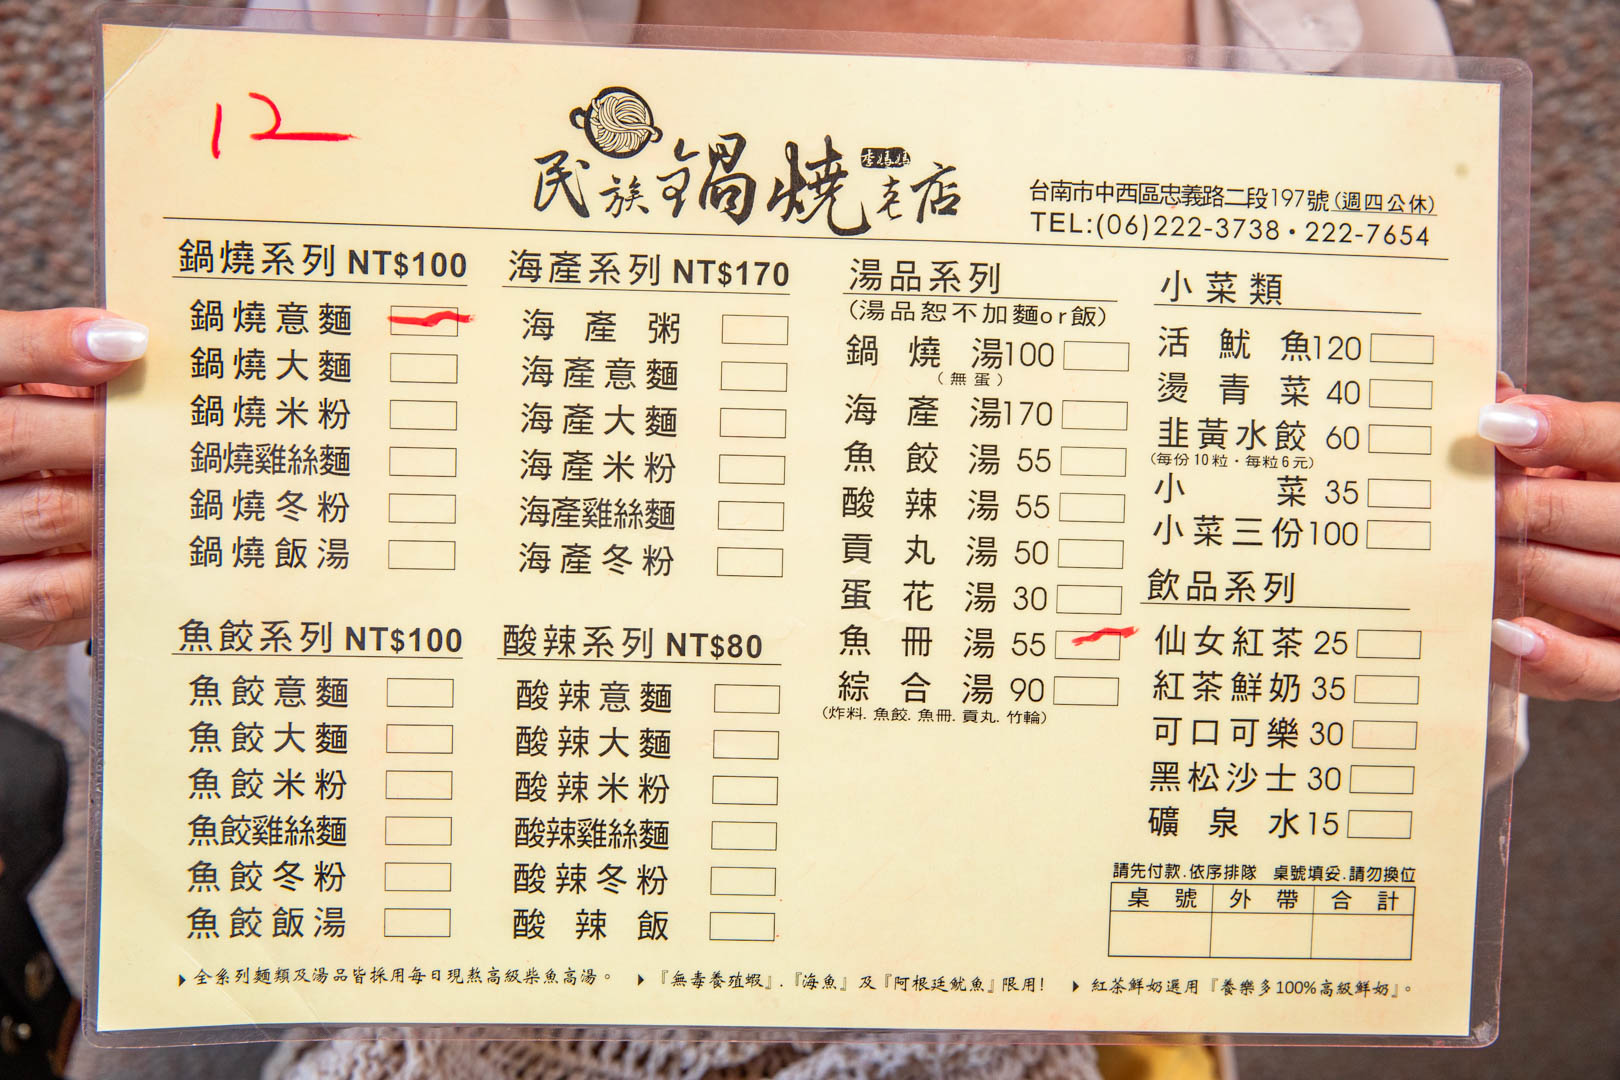 12
民族鍋燒老店
李媽媽
台南市中西區忠義路二段197號(週四公休)
TEL:(06)222-3738・222-7654
鍋燒系列 NT$100
鍋燒意麵
鍋燒大麵
鍋燒米粉
鍋燒雞絲麵
鍋燒冬粉
鍋燒飯湯
魚餃系列 NT$100
魚餃意麵
魚餃大麵
魚餃米粉
魚餃雞絲麵
魚餃冬粉
魚餃飯湯
海產系列 NT$170
海產粥
海產意麵
海產大麵
海產米粉
海產雞絲麵
海產冬粉
酸辣系列 NT$80
酸辣意麵
酸辣大麵
酸辣米粉
酸辣雞絲麵
酸辣冬粉
酸辣飯
湯品系列
(湯品恕不加麵or飯)
鍋燒湯100
(無蛋)
海產湯170
魚餃湯 55
酸辣湯 55
貢丸湯 50
蛋花湯 30
魚冊湯 55
綜合湯 90
(炸料.魚餃.魚冊.貢丸.竹輪)
小菜類
活魷魚120
燙青菜 40
韭黃水餃 60
(每份10粒・每粒6元)
小菜 35
小菜三份100
飲品系列
仙女紅茶 25
紅茶鮮奶 35
可口可樂 30
黑松沙士 30
礦泉水 15
請先付款.依序排隊 桌號填妥.請勿換位
桌號 外帶 合計
全系列麵類及湯品皆採用每日現熬高級柴魚高湯。
『無毒養殖蝦』.『海魚』及『阿根廷魷魚』限用!
紅茶鮮奶選用『養樂多100%高級鮮奶』。